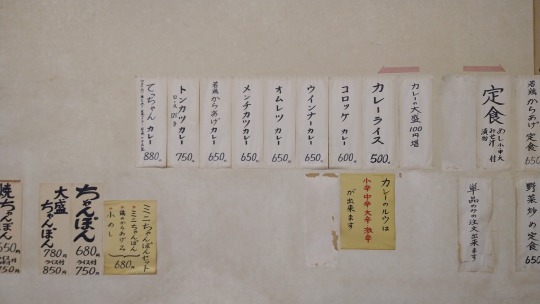 若鶏からあげ定食
650
定食
めし小中大
みそ汁
漬物
付
カレーの大盛100円増
カレーライス
500.
コロッケカレー
600
ウインナーカレー
650
オムレツカレー
650
メンチカツカレー
650
若鶏からあげカレー
650
トンカツカレー
750
てっちゃんカレー
880
野菜炒め定食
650
単品のみの注文出来ます
カレーのルウは
小辛中辛大辛激辛
が出来ます
ミニちゃんぽんセット
ミニちゃんぽん
鶏のからあげ2コ
小めし
680円
ちゃんぽん
680円
ライス付
750円
大盛ちゃんぽん
780円
ライス付
850円
焼ちゃんぽん
650円
750円